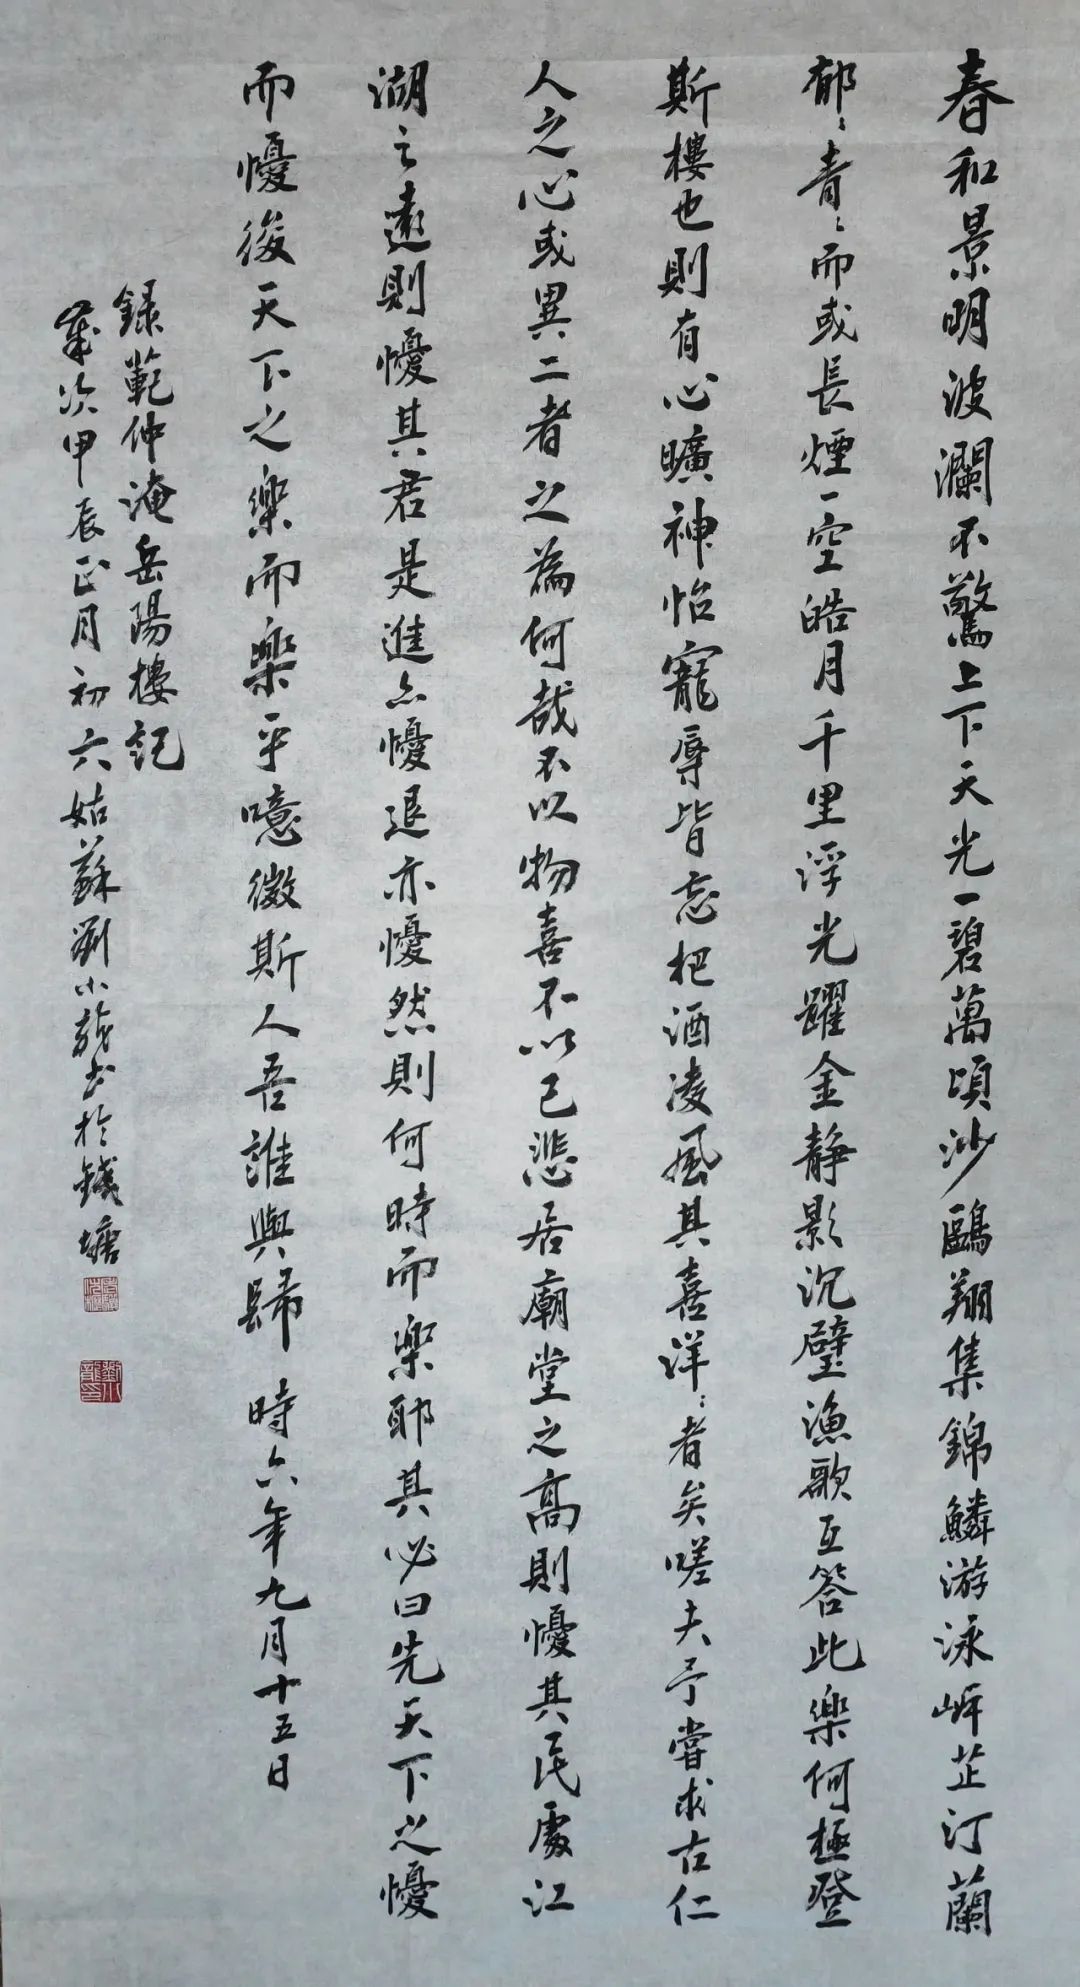 春和景明波瀾不驚上下天光一碧萬頃沙鷗翔集錦鱗游泳岸芷汀蘭
郁〻青〻而或長煙一空皓月千里浮光躍金静影沉璧漁歌互答此樂何極登
斯樓也則有心曠神怡寵辱皆忘把酒凌風其喜洋〻者矣嗟夫予嘗求古仁
人之心或異二者之為何哉不以物喜不以己悲居廟堂之高則懮其民處江
湖之遠則懮其君是進亦懮退亦懮然則何時而樂耶其必曰先天下之懮
而懮後天下之樂而樂乎噫微斯人吾誰與歸 時六年九月十五日
錄範仲淹岳陽樓記
歲次甲辰正月初六姑蘇劉小龍书於錢塘
劉小龍印